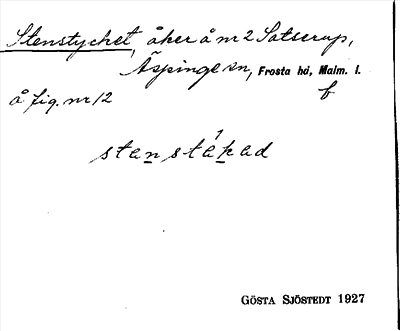 Stenstycket, åker å nr 2 Satserup,
Äspinge sn, Frosta hd, Malm. l.
å fig. nr 12 f
stanstákad
GÖSTA SJÖSTEDT 1927